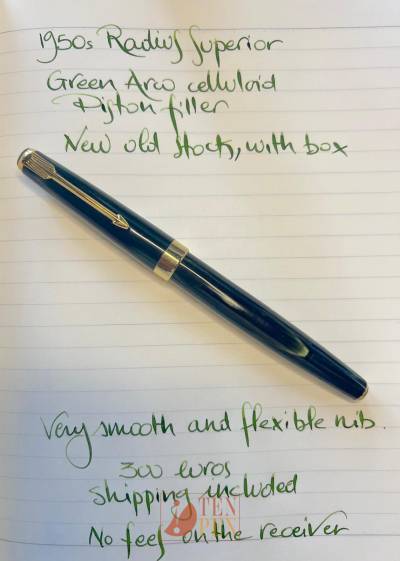 1950s Radius Superior
Green Arco celluloid
Piston filler
New old stock, with box
Very smooth and flexible nib.
300 euros
shipping included
TEN
PEN
No fees on the receiver